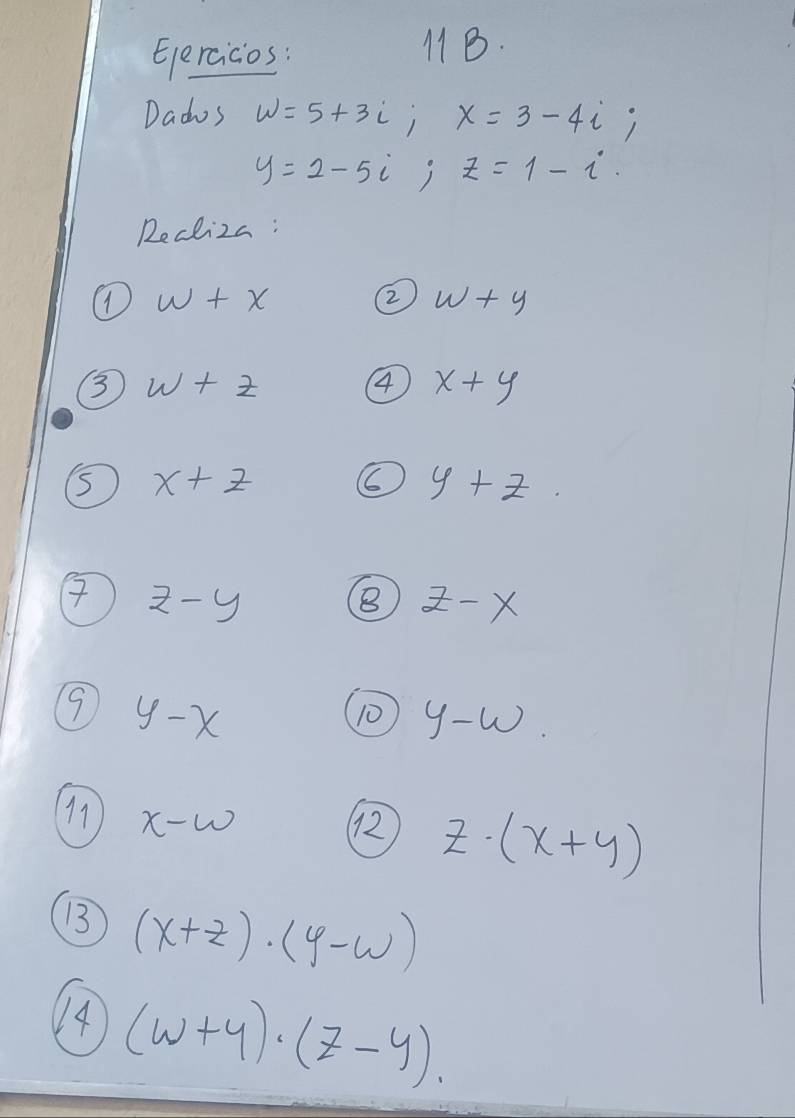 Ejercicios: 11B.
Dados w=5+3i; x=3-4i;
y=2-5i; z=1-i.
Realiza:
① w+x ② w+y
③ w+z ④ x+y
⑤ x+z ⑥ y+z.
⑦ z-y ⑧ z-x
⑨ y-x ⑩ y-w.
⑪ x-w ⑫ z·(x+y)
⑬ (x+z)·(y-w)
⑭ (w+y)·(z-y).